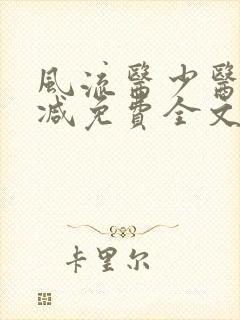 風流醫少醫
减免費全文
卡里尔